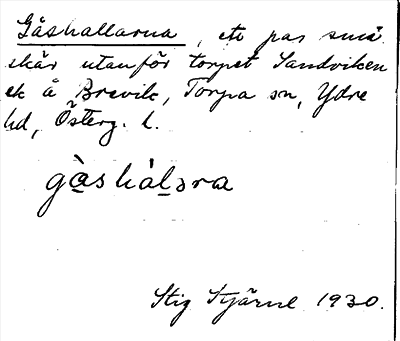 Gåshallarna, ett par små
skär utanför torpet Sandviken
ek å Brevik, Torpa sn, Ydre
hd, Österg. l.
gåshálǝra
Stig Stjärne 1930.